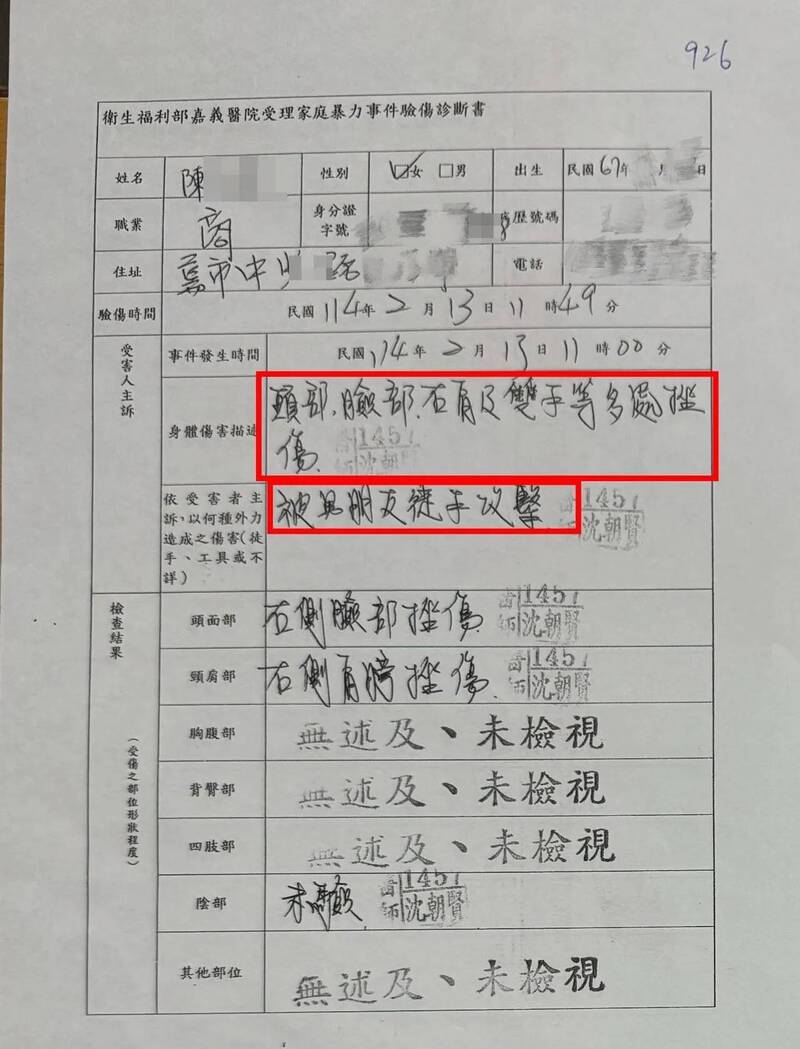 926
衛生福利部嘉義醫院受理家庭暴力事件驗傷診斷書
姓名 陳 性別 ☑女 □男 出生 民國67年 月 日
職業 商 身分證字號 病歷號碼
住址 嘉市中 路 電話
驗傷時間 民國114年2月13日11時49分
受害人主訴
事件發生時間 民國114年2月13日11時00分
身體傷害描述 頭部、臉部、右肩及雙手等多處挫
傷
1457
沈朝賢
依受害者主
訴,以何種外力
造成之傷害(徒
手、工具或不
詳)
被男朋友徒手攻擊
醫師 1457 沈朝賢
檢查結果
(受傷之部位形狀程度)
頭面部 右側臉部挫傷 醫師 1457 沈朝賢
頸肩部 右側肩膀挫傷 醫師 1457 沈朝賢
胸腹部 無述及、未檢視
背臀部 無述及、未檢視
四肢部 無述及、未檢視
陰部 未驗 醫師 1457 沈朝賢
其他部位 無述及、未檢視